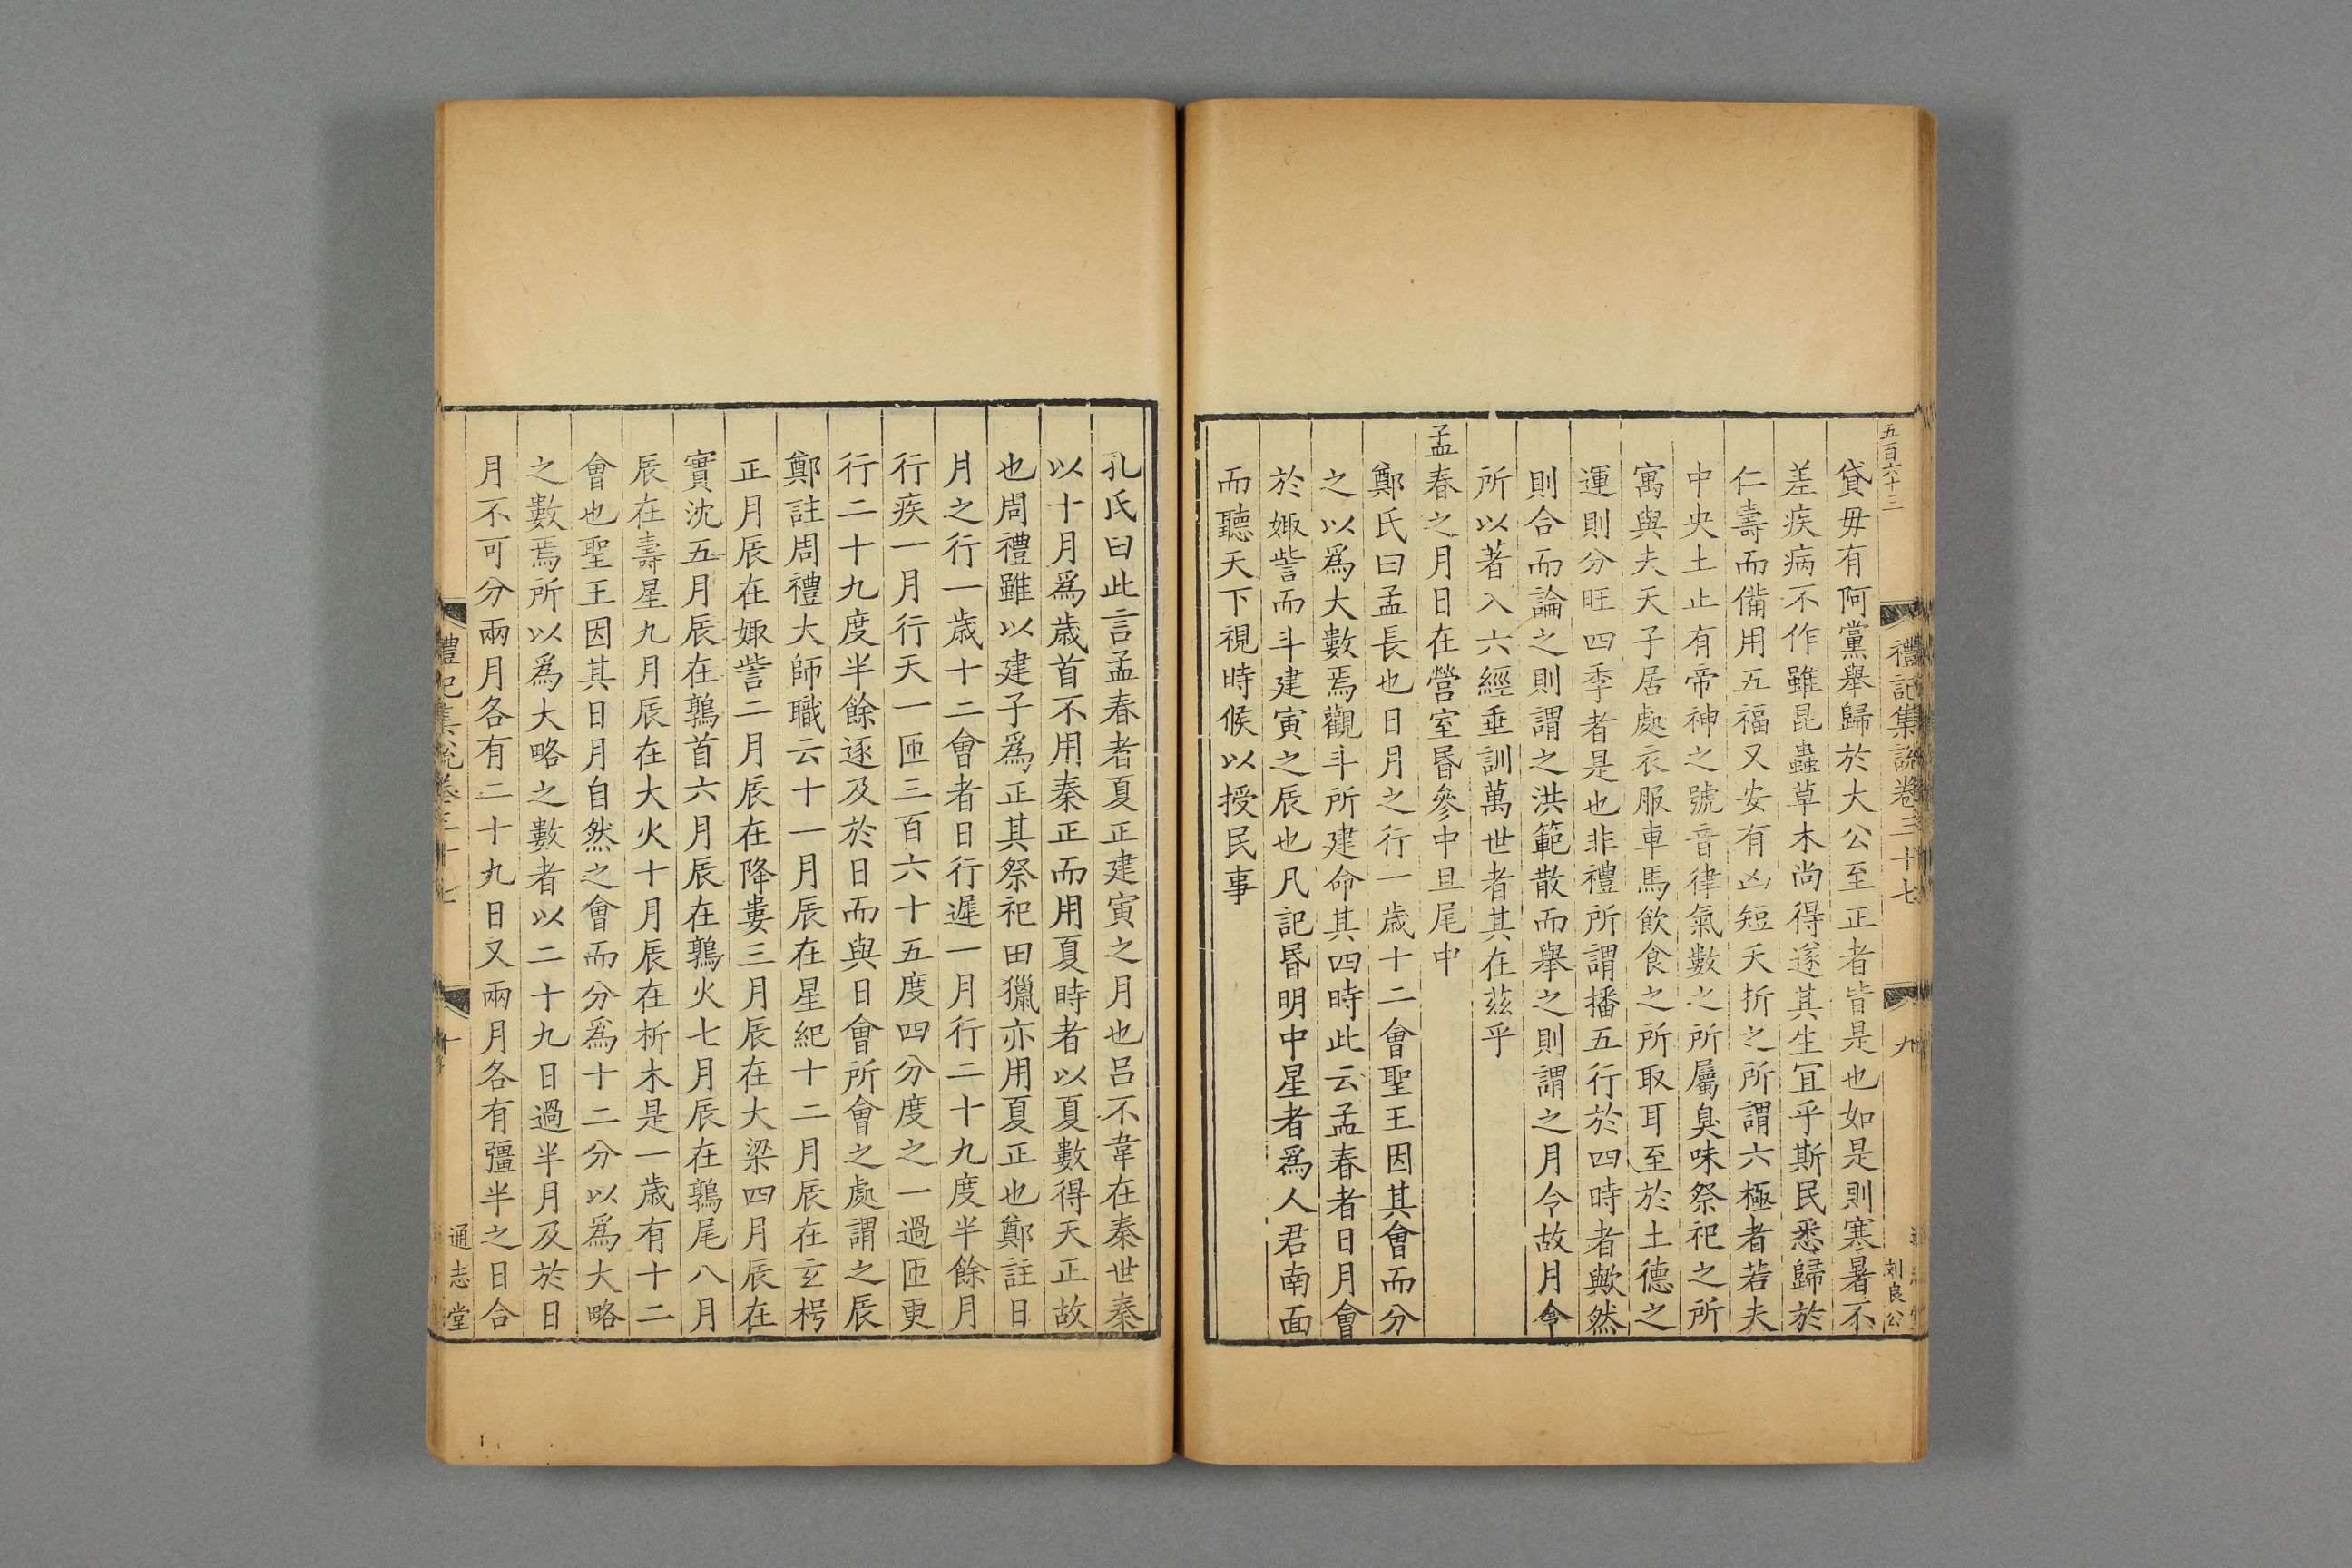 五百六十二
禮記集說卷三十七
九
刘良公
貸毋有阿黨舉歸於大公至正者皆是也如是則寒暑不
差疾病不作雖昆蟲草木尚得遂其生宜乎斯民悉歸於
仁壽而備用五福又安有凶短夭折之所謂六極者若夫
中央土止有帝神之號音律氣數之所屬臭味祭祀之所
寓與夫天子居處衣服車馬飲食之所取耳至於土德之
運則分旺四季者是也非禮所謂播五行於四時者歟然
則合而論之則謂之洪範散而舉之則謂之月令故月令
所以著入六經垂訓萬世者其在茲乎
孟春之月日在營室昏參中旦尾中
鄭氏曰孟長也日月之行一歲十二會聖王因其會而分
之以爲大數焉觀斗所建命其四時此云孟春者日月會
於娵訾而斗建寅之辰也凡記昏明中星者爲人君南面
而聽天下視時候以授民事
孔氏曰此言孟春者夏正建寅之月也呂不韋在秦世秦
以十月爲歲首不用秦正而用夏時者以夏數得天正故
也周禮雖以建子爲正其祭祀田獵亦用夏正也鄭註日
月之行一歲十二會者日行遲一月行二十九度半餘月
行疾一月行天一匝三百六十五度四分度之一過匝更
行二十九度半餘逐及於日而與日會所會之處謂之辰
鄭註周禮大師職云十一月辰在星紀十二月辰在玄枵
正月辰在娵訾二月辰在降婁三月辰在大梁四月辰在
實沈五月辰在鶉首六月辰在鶉火七月辰在鶉尾八月
辰在壽星九月辰在大火十月辰在析木是一歲有十二
會也聖王因其日月自然之會而分爲十二分以爲大略
之數焉所以爲大略之數者以二十九日過半月及於日
月不可分兩月各有二十九日又兩月各有彊半之日合
禮記集說卷三十七
十
通志堂